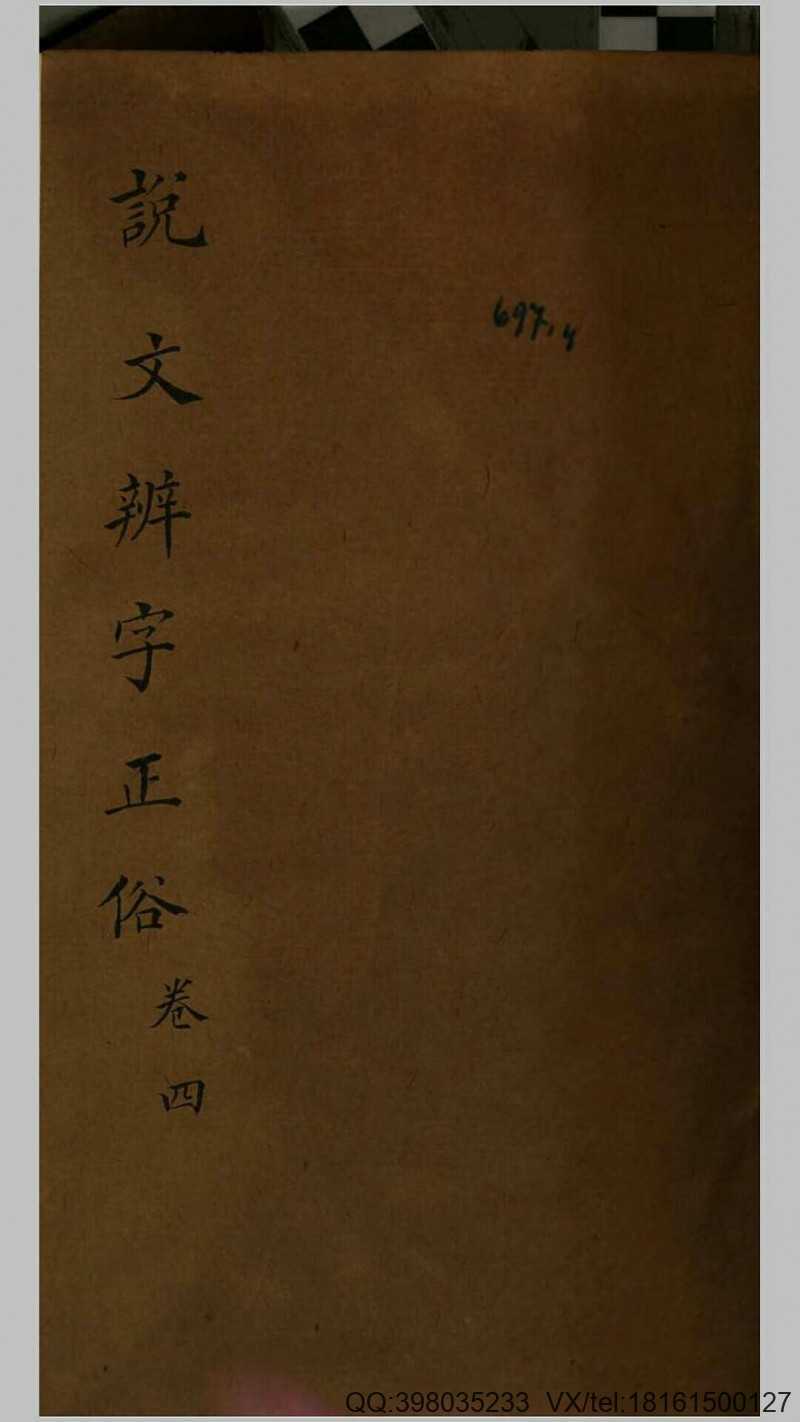 說文辨字正俗
卷四
697,4
QQ:398035233 VX/tel:18161500127